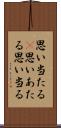 思い当たる
思いあた
る思い当る